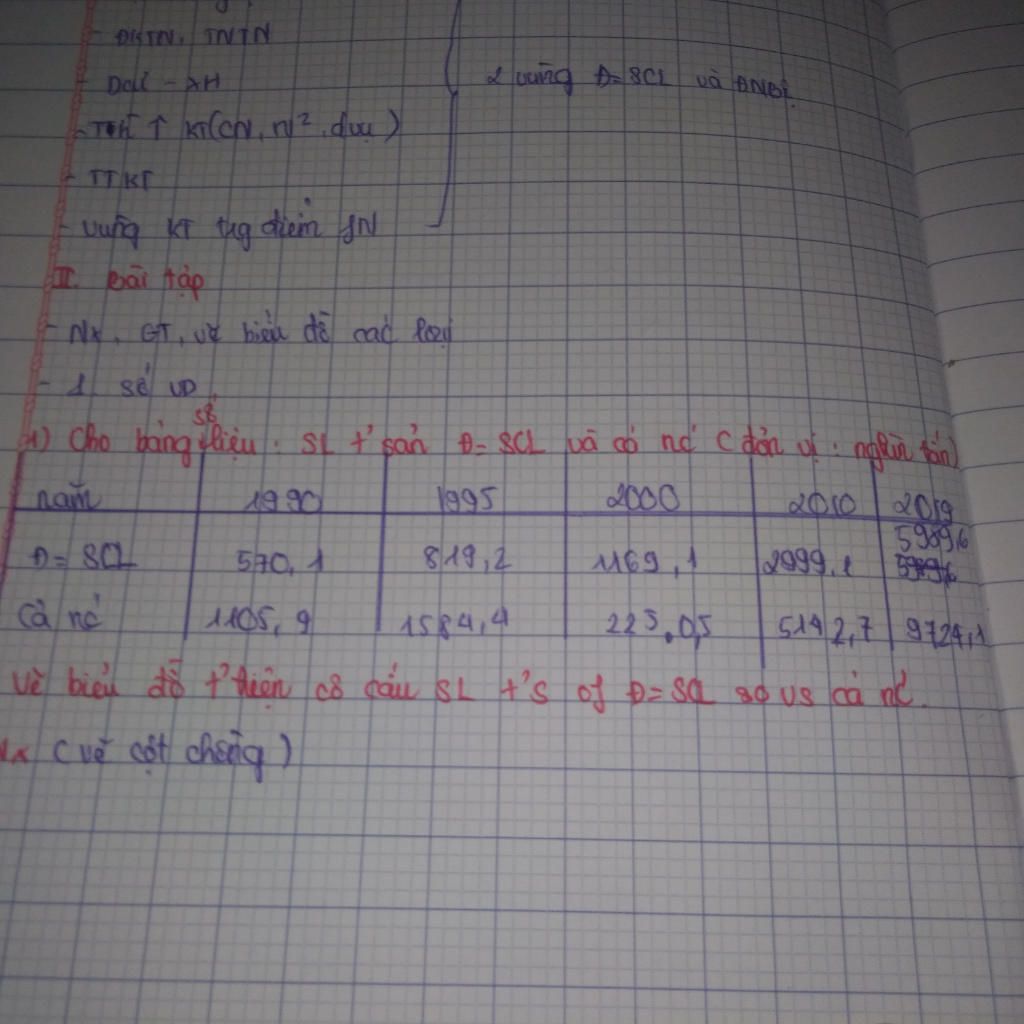 - ĐKTN, TNTN
- Dcư - XH
- THH ↑ KT(CN, n², dvụ)
- TTKT
- vùng KT trg điểm SN
2 vùng Đ=SCL và ĐNBộ
II. Bài tập
- Nx, GT, vẽ biểu đồ các loại
- 1 số VD
1) Cho bảng số liệu: SL t' sản Đ=SCL và cả nc' (đơn vị: nghìn tấn)
năm 1990 1995 2000 2010 2019
Đ=SCL 570,1 819,2 1169,1 2999,1 5989,6
cả nc' 1105,9 1584,4 225.0,5 5142,7 9724,1
Vẽ biểu đồ t' hiện cơ cấu SL t's of Đ=SCL so vs cả nc'.
Nx (vẽ cột chồng)